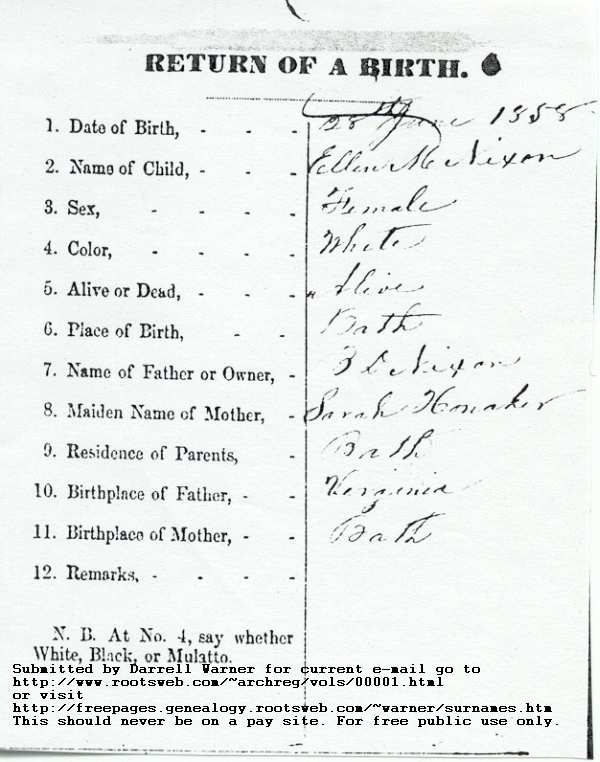 RETURN OF A BIRTH.
1. Date of Birth, - - - 28 June 1858
2. Name of Child, - - Ellen M Nixon
3. Sex, - - - - Female
4. Color, - - - - White
5. Alive or Dead, - - - Alive
6. Place of Birth, - - Bath
7. Name of Father or Owner, - Nixon
8. Maiden Name of Mother, - Sarah Honaker
9. Residence of Parents, - Bath
10. Birthplace of Father, - - Virginia
11. Birthplace of Mother, - - Bath
12. Remarks, - - - -
N. B. At No. 4, say whether
White, Black, or Mulatto.
Submitted by Darrell Warner for current e-mail go to
http://www.rootsweb.com/~archreg/vols/00001.html
or visit
http://freepages.genealogy.rootsweb.com/~warner/surnames.htm
This should never be on a pay site. For free public use only.